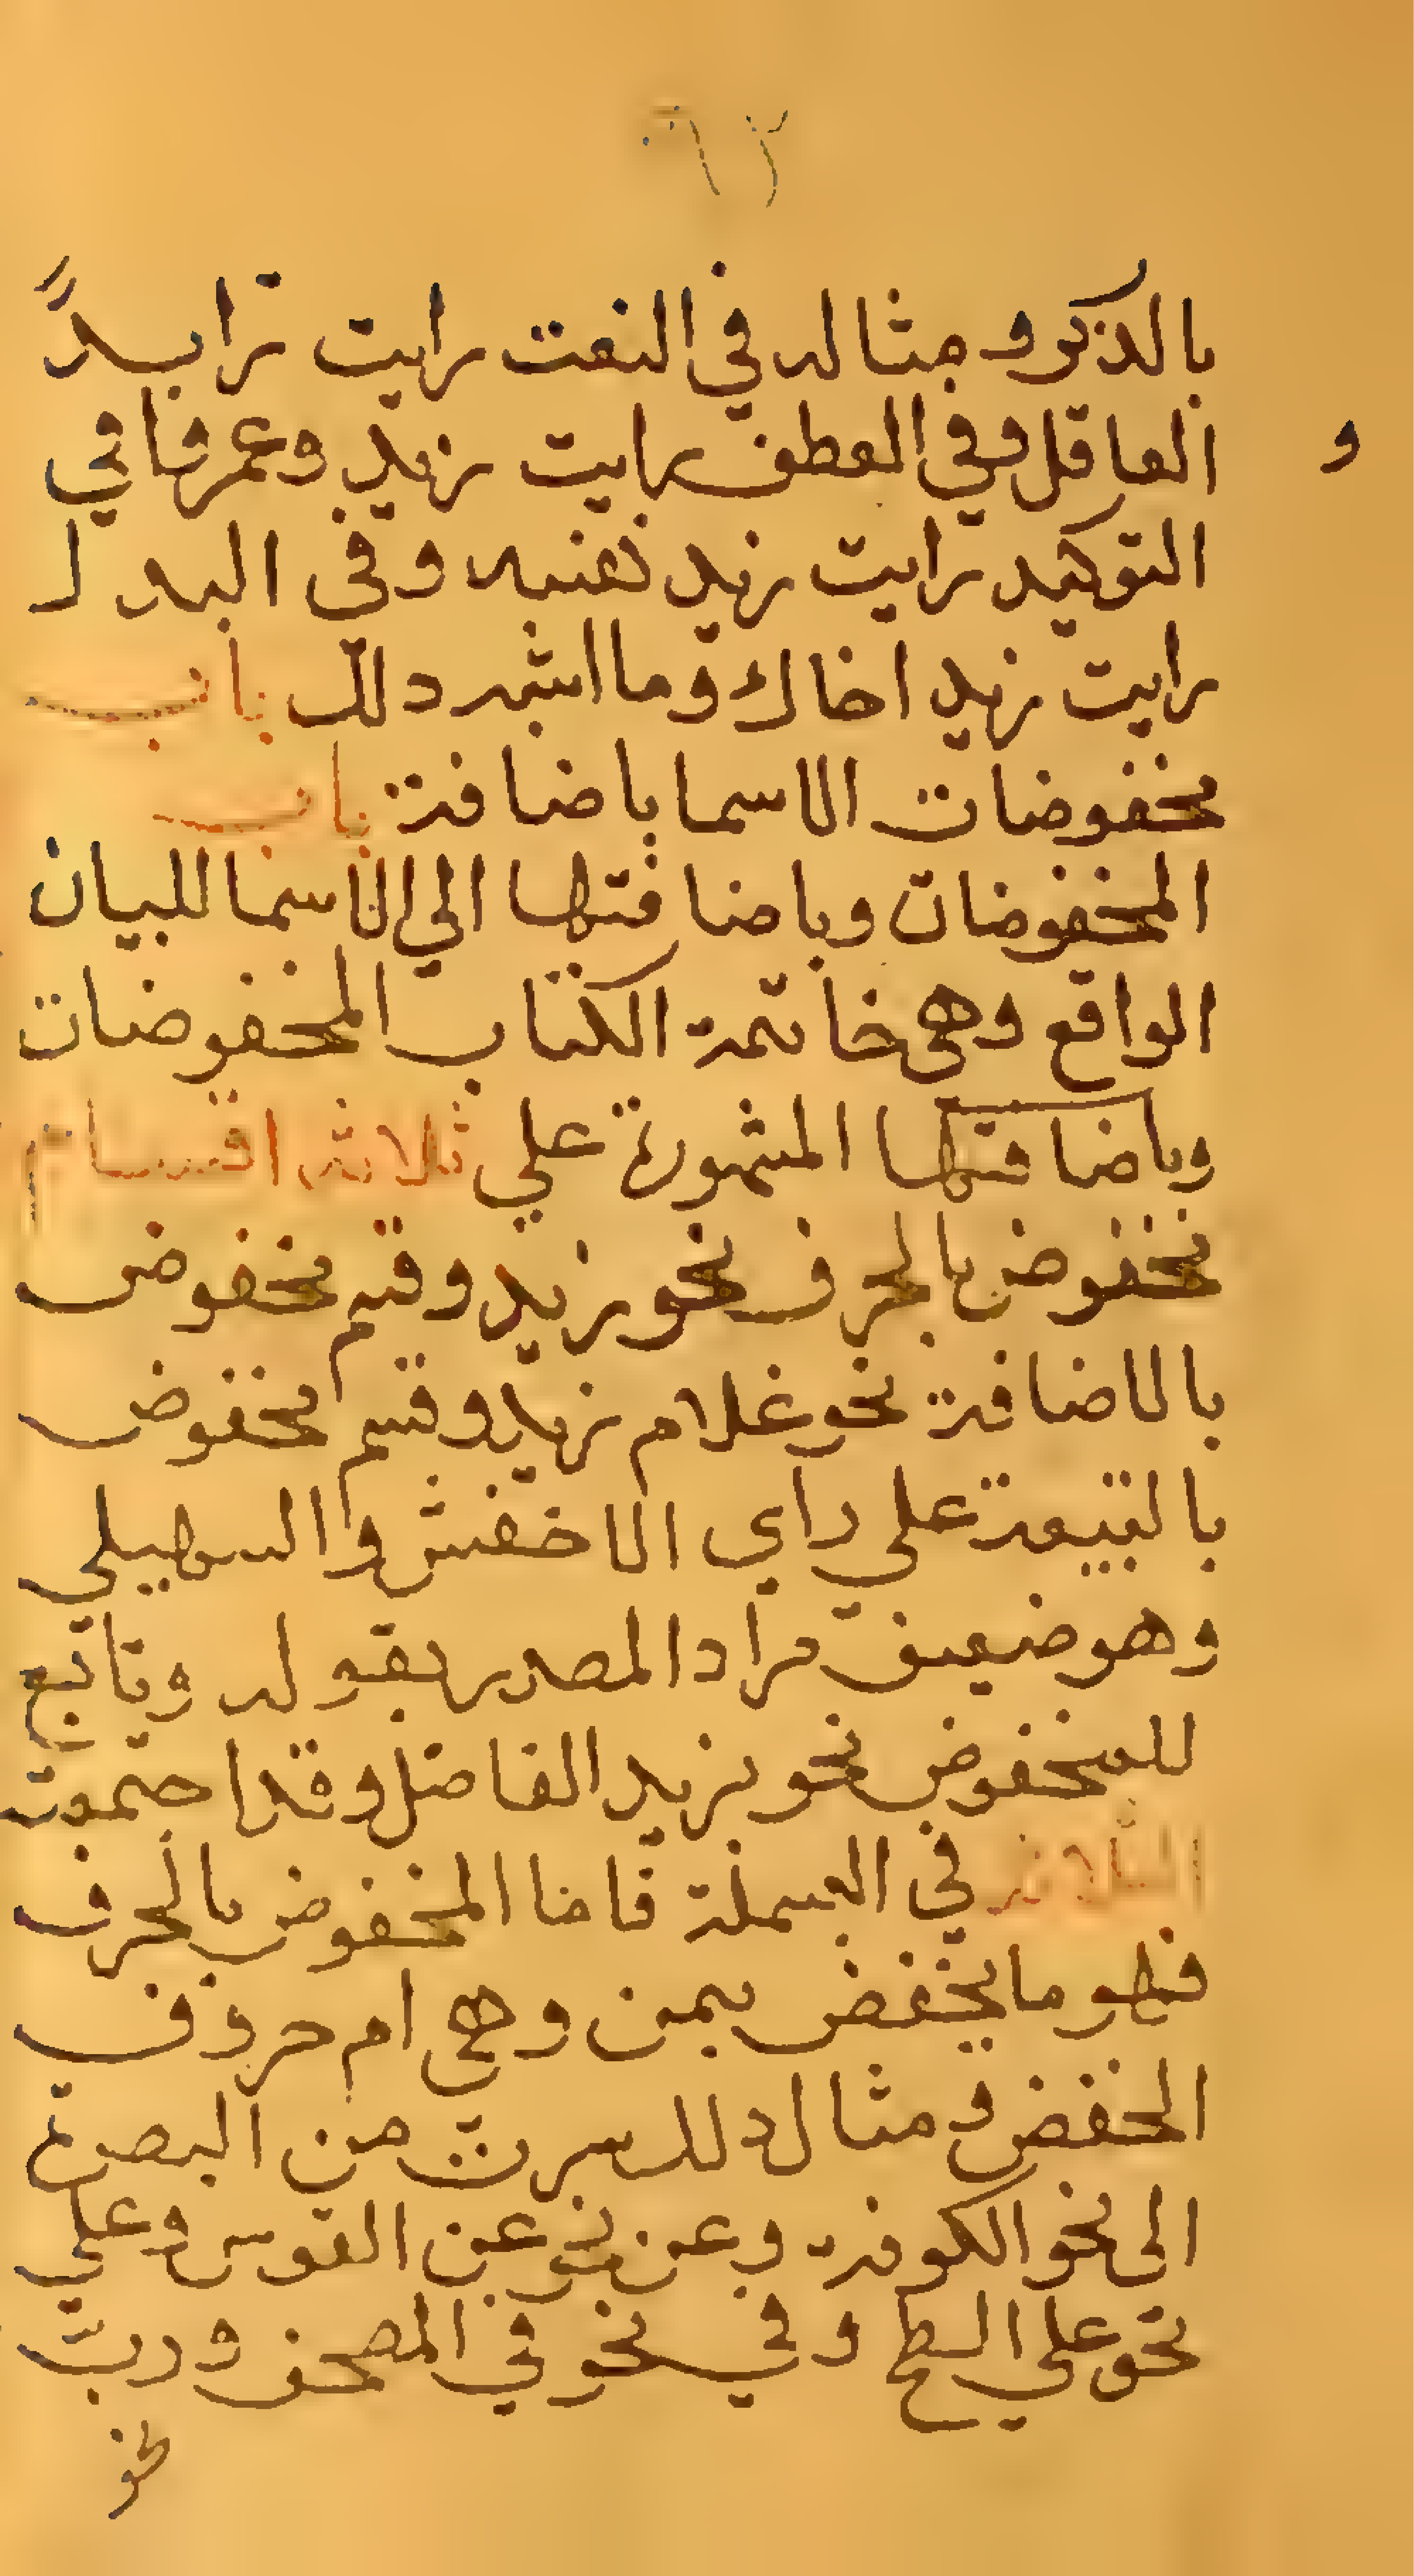 بالذكر ومثاله في النعت رايت زايداً
العاقل وفي العطف رايت زيد وعمر وفي
التوكيد رايت زيد نفسه وفى البدل
رايت زيد اخاك وما اشبه دلك باب
مخفوضات الاسما باضافة باب
المخفوضات وباضافتها الي الاسما للبيان
الواقع وهى خاتمة الكتاب المخفوضات
وباضافتها المشهورة علي ثلاثة اقسام
مخفوض بالحرف نحو زيد وقسم مخفوض
بالاضافة نحو غلام زيد وقسم مخفوض
بالتبيعة علي راي الاخفش والسهيلي
وهو ضعيف مراد المصدر بقوله وتابع
للمخفوض نحو بزيد الفاضل وقد اجتمعت
الثلاثة في البسملة فاما المخفوض بالحرف
فهو ما يخفض بمن وهي ام حروف
الخفض ومثال دلك سرت من البصرة
الى نحو الكوفة وعن نحو عن القوس وعلي
نحو علي السطح وفي نحو في المصحف ورب
نحو